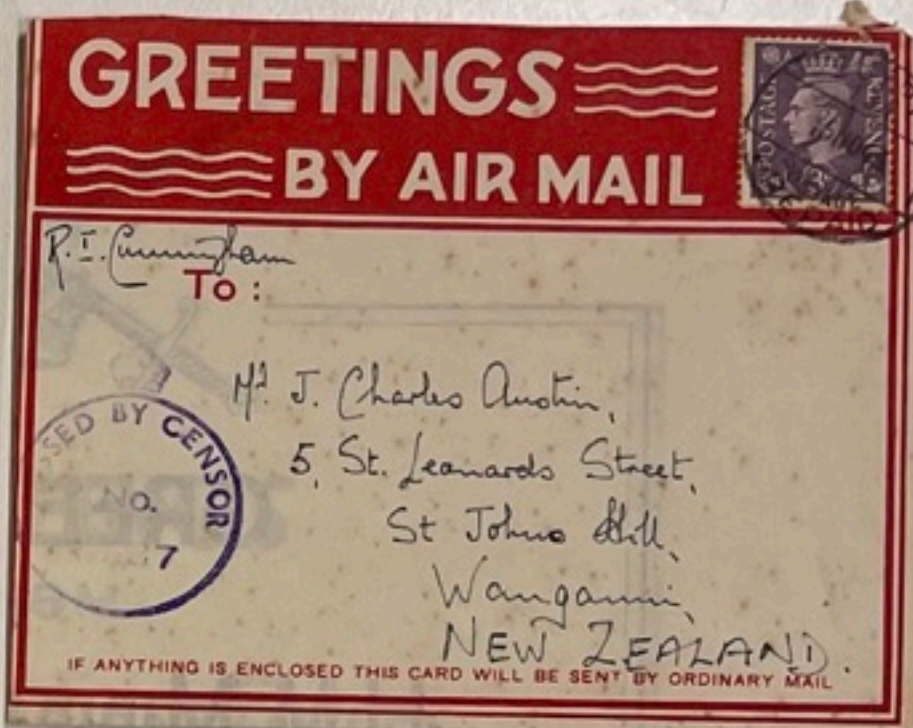 GREETINGS
BY AIR MAIL
POSTAGE REVENUE
PAID
R. I. Cunningham
To:
Mr J. Charles Austin,
5, St. Leonards Street,
St Johns Hill,
Wanganui,
NEW ZEALAND.
SED BY CENSOR
No.
7
IF ANYTHING IS ENCLOSED THIS CARD WILL BE SENT BY ORDINARY MAIL